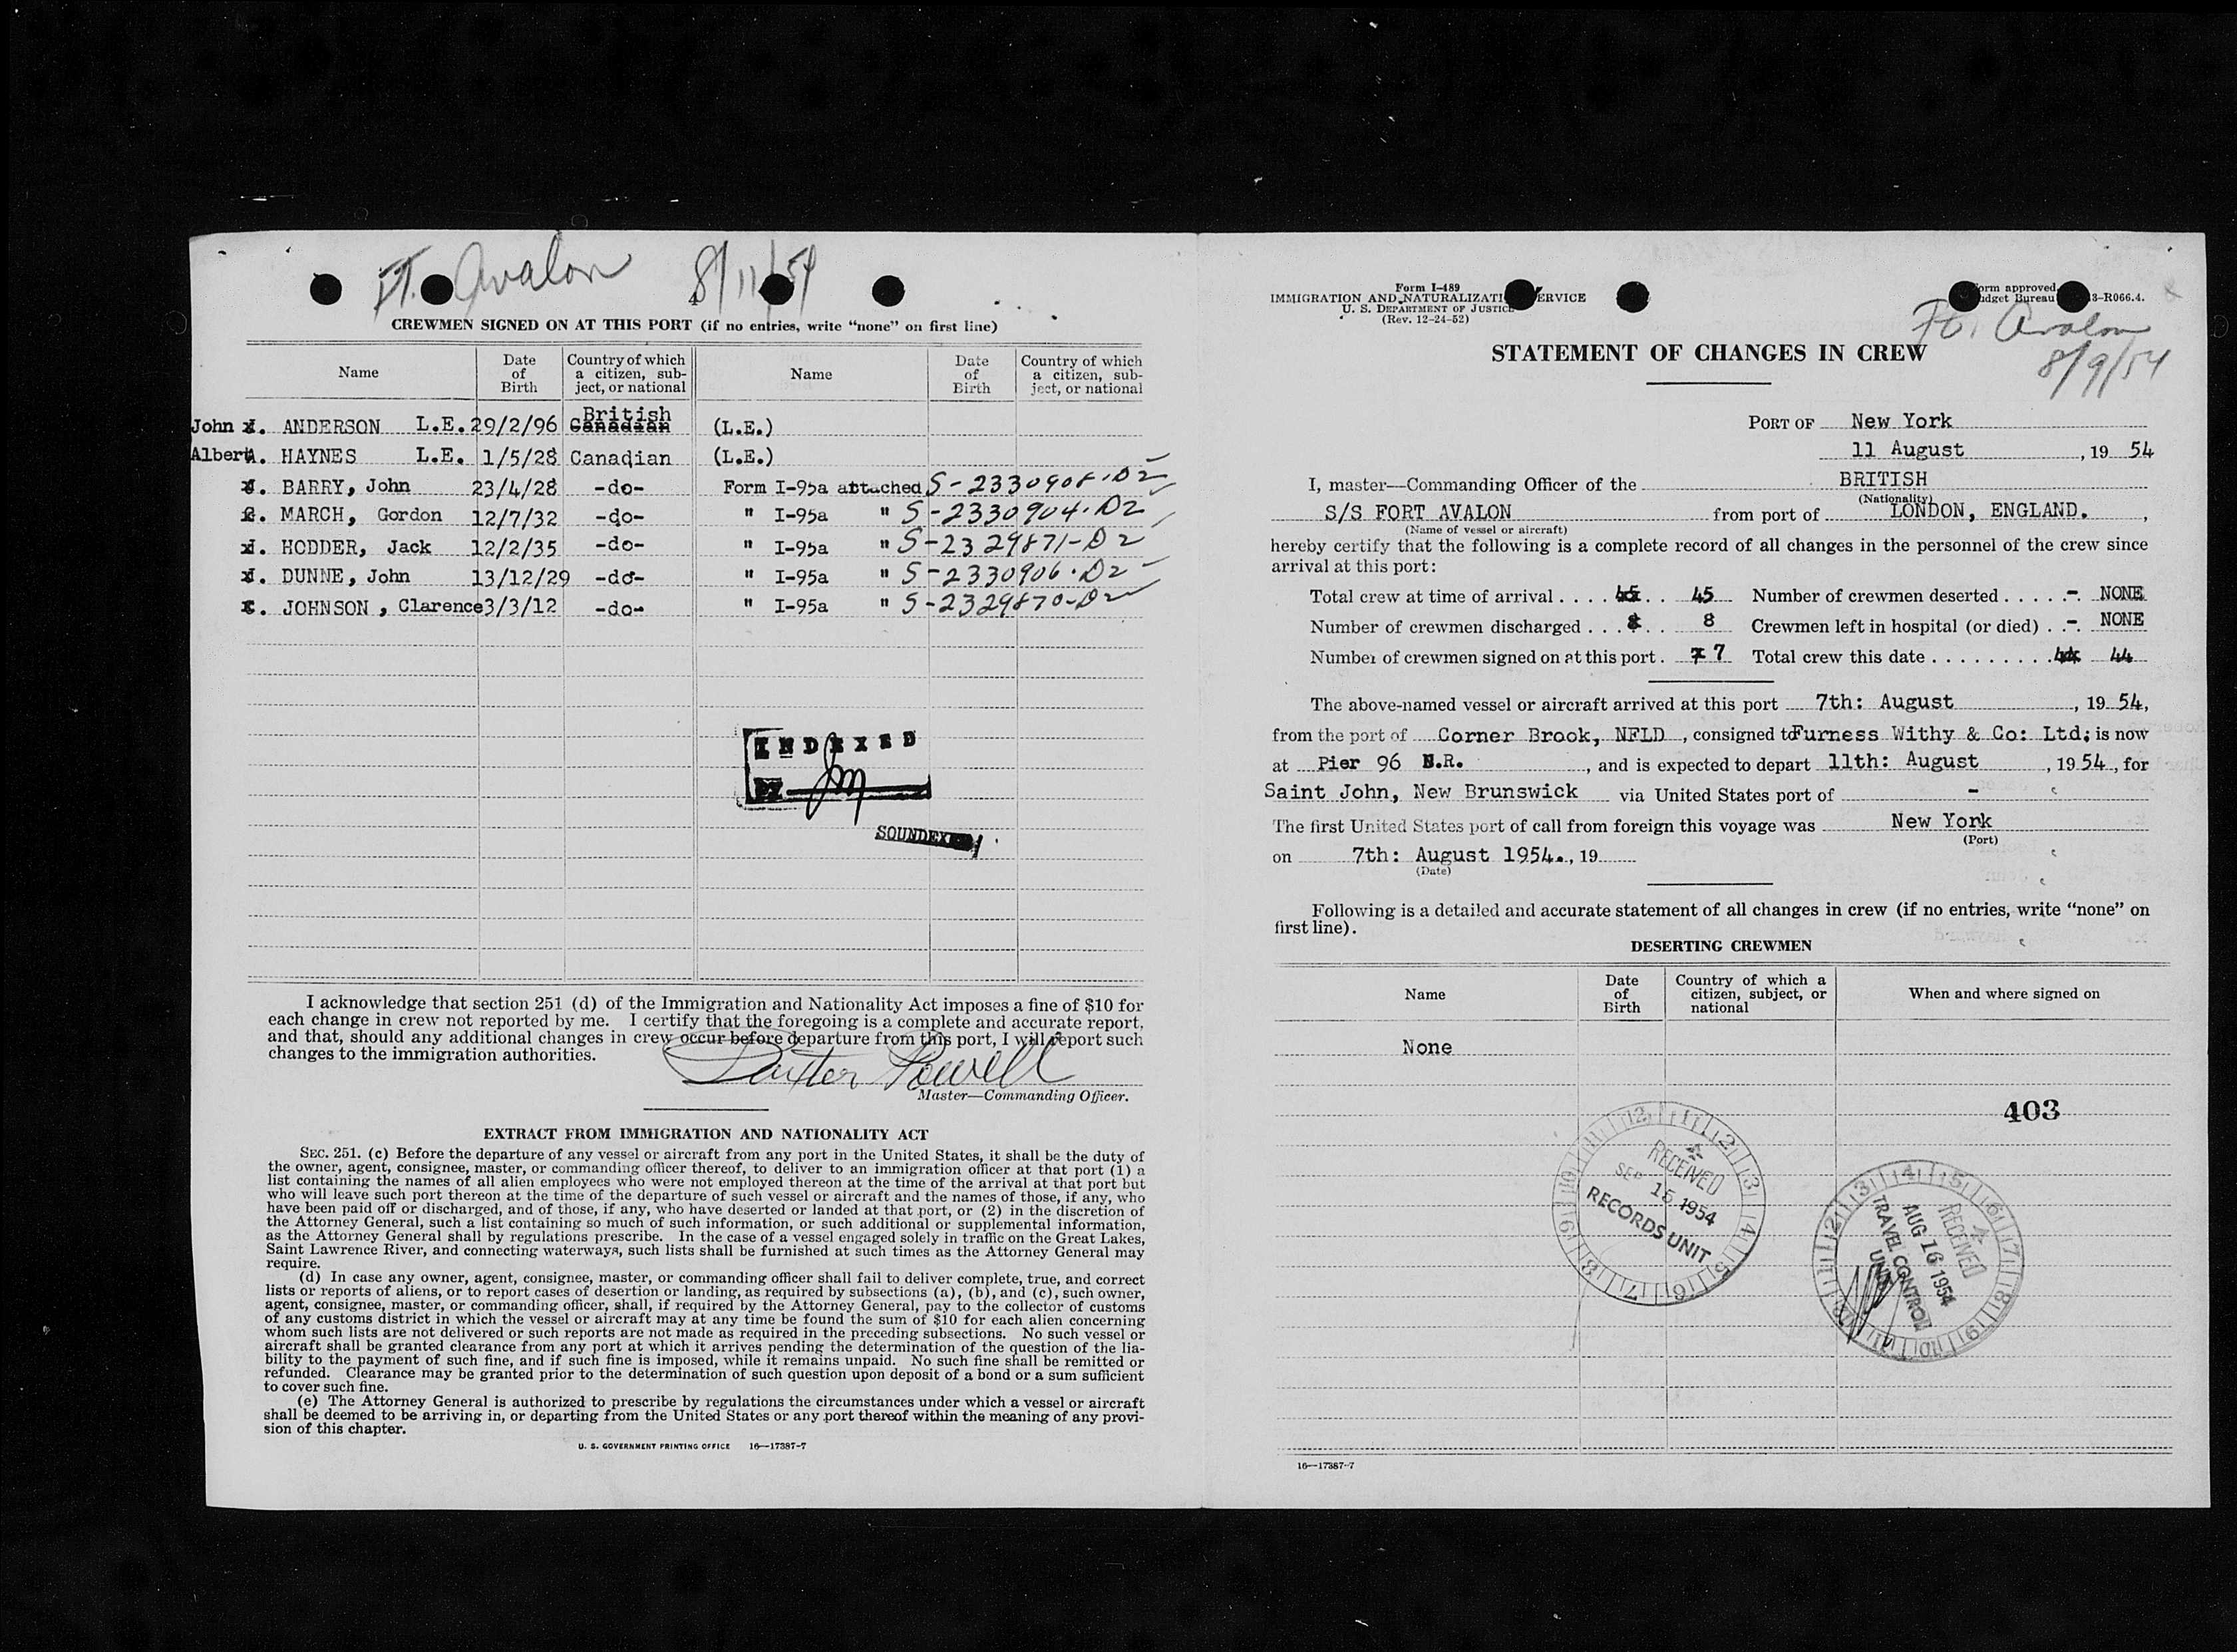 Ft. Avalon 8/11/54
CREWMEN SIGNED ON AT THIS PORT (if no entries, write "none" on first line)
Name Date of Birth Country of which a citizen, subject, or national Name Date of Birth Country of which a citizen, subject, or national
John J. ANDERSON L.E. 29/2/96 British Canadian (L.E.)
Albert A. HAYNES L.E. 1/5/28 Canadian (L.E.)
J. BARRY, John 23/4/28 -do- Form I-95a attached S-2330908-D2
G. MARCH, Gordon 12/7/32 -do- " I-95a " S-2330904-D2
J. HODDER, Jack 12/2/35 -do- " I-95a " S-2329871-D2
J. DUNNE, John 13/12/29 -do- " I-95a " S-2330906-D2
C. JOHNSON , Clarence 3/3/12 -do- " I-95a " S-2329870-D2
INDEXED
BY JM
SOUNDEXED
I acknowledge that section 251 (d) of the Immigration and Nationality Act imposes a fine of $10 for
each change in crew not reported by me. I certify that the foregoing is a complete and accurate report,
and that, should any additional changes in crew occur before departure from this port, I will report such
changes to the immigration authorities.
Baxter Powell
Master—Commanding Officer.
EXTRACT FROM IMMIGRATION AND NATIONALITY ACT
SEC. 251. (c) Before the departure of any vessel or aircraft from any port in the United States, it shall be the duty of
the owner, agent, consignee, master, or commanding officer thereof, to deliver to an immigration officer at that port (1) a
list containing the names of all alien employees who were not employed thereon at the time of the arrival at that port but
who will leave such port thereon at the time of the departure of such vessel or aircraft and the names of those, if any, who
have been paid off or discharged, and of those, if any, who have deserted or landed at that port, or (2) in the discretion of
the Attorney General, such a list containing so much of such information, or such additional or supplemental information,
as the Attorney General shall by regulations prescribe. In the case of a vessel engaged solely in traffic on the Great Lakes,
Saint Lawrence River, and connecting waterways, such lists shall be furnished at such times as the Attorney General may
require.
(d) In case any owner, agent, consignee, master, or commanding officer shall fail to deliver complete, true, and correct
lists or reports of aliens, or to report cases of desertion or landing, as required by subsections (a), (b), and (c), such owner,
agent, consignee, master, or commanding officer, shall, if required by the Attorney General, pay to the collector of customs
of any customs district in which the vessel or aircraft may at any time be found the sum of $10 for each alien concerning
whom such lists are not delivered or such reports are not made as required in the preceding subsections. No such vessel or
aircraft shall be granted clearance from any port at which it arrives pending the determination of the question of the lia-
bility to the payment of such fine, and if such fine is imposed, while it remains unpaid. No such fine shall be remitted or
refunded. Clearance may be granted prior to the determination of such question upon deposit of a bond or a sum sufficient
to cover such fine.
(e) The Attorney General is authorized to prescribe by regulations the circumstances under which a vessel or aircraft
shall be deemed to be arriving in, or departing from the United States or any port thereof within the meaning of any provi-
sion of this chapter.
U. S. GOVERNMENT PRINTING OFFICE 16—17387-7
Form I-489
IMMIGRATION AND NATURALIZATI ERVICE
U. S. DEPARTMENT OF JUSTICE
(Rev. 12-24-52)
orm approved.
udget Bureau 3-R066.4.
Ft. Avalon
8/9/54
STATEMENT OF CHANGES IN CREW
PORT OF New York
11 August , 19 54
I, master—Commanding Officer of the BRITISH
(Nationality)
S/S FORT AVALON from port of LONDON, ENGLAND. ,
(Name of vessel or aircraft)
hereby certify that the following is a complete record of all changes in the personnel of the crew since
arrival at this port:
Total crew at time of arrival . . . . 45 . . 45 Number of crewmen deserted . . . . . -. NONE
Number of crewmen discharged . . . 8 . . 8 Crewmen left in hospital (or died) . . -. NONE
Number of crewmen signed on at this port . 7 7 Total crew this date . . . . . . . . . 44 44
The above-named vessel or aircraft arrived at this port 7th: August , 19 54,
from the port of Corner Brook, NFLD , consigned to Furness Withy & Co: Ltd; is now
at Pier 96 N.R. , and is expected to depart 11th: August , 19 54 , for
Saint John, New Brunswick via United States port of -
The first United States port of call from foreign this voyage was New York
(Port)
on 7th: August 1954. , 19
(Date)
Following is a detailed and accurate statement of all changes in crew (if no entries, write "none" on
first line).
DESERTING CREWMEN
Name Date of Birth Country of which a citizen, subject, or national When and where signed on
None
403
RECEIVED
SEP 15 1954
RECORDS UNIT
RECEIVED
AUG 16 1954
TRAVEL CONTROL
UNIT
16—17387-7